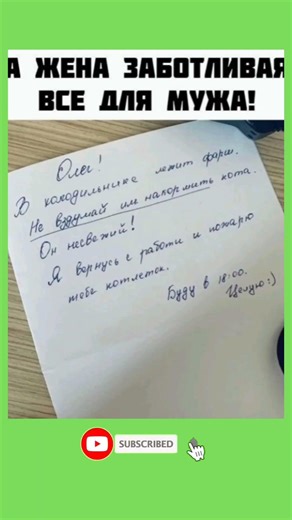 А ЖЕНА ЗАБОТЛИВАЯ
ВСЕ ДЛЯ МУЖА!
Олег!
В холодильнике лежит фарш.
Не вздумай им накормить кота.
Он несвежий!
Я вернусь с работы и пожарю
тебе котлеток.
Буду в 18:00.
Целую :)
SUBSCRIBED